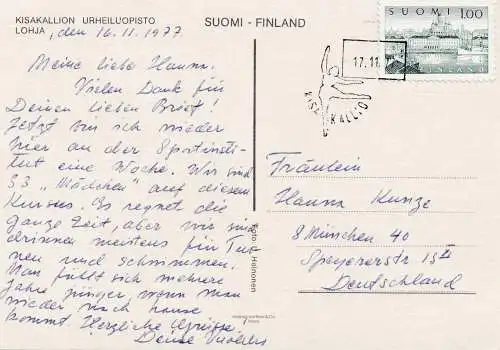 KISAKALLION URHEILUOPISTO
LOHJA, den 16.11.1977
SUOMI - FINLAND
Meine liebe Hanna.
Vielen Dank für
Deinen lieben Brief!
Jetzt bin ich wieder
hier an der Sportinsti-
tut eine Woche. Wir sind
33 „Mädchen" auf diesem
Kursus. Es regnet die
ganze Zeit, aber wir sind
drinnen meistens für Tur-
nen und schwimmen.
Man fühlt sich mehrere
Jahre jünger, wenn man
wieder nach hause
kommt. Herzliche Grüsse
Deine
Foto: J. Heinonen
17.11.
KISAKALLIO
SUOMI 1.00
FINLAND
Fräulein
Hanna Kunze
8 München 40
Speyererstr 15 II
Deutschland